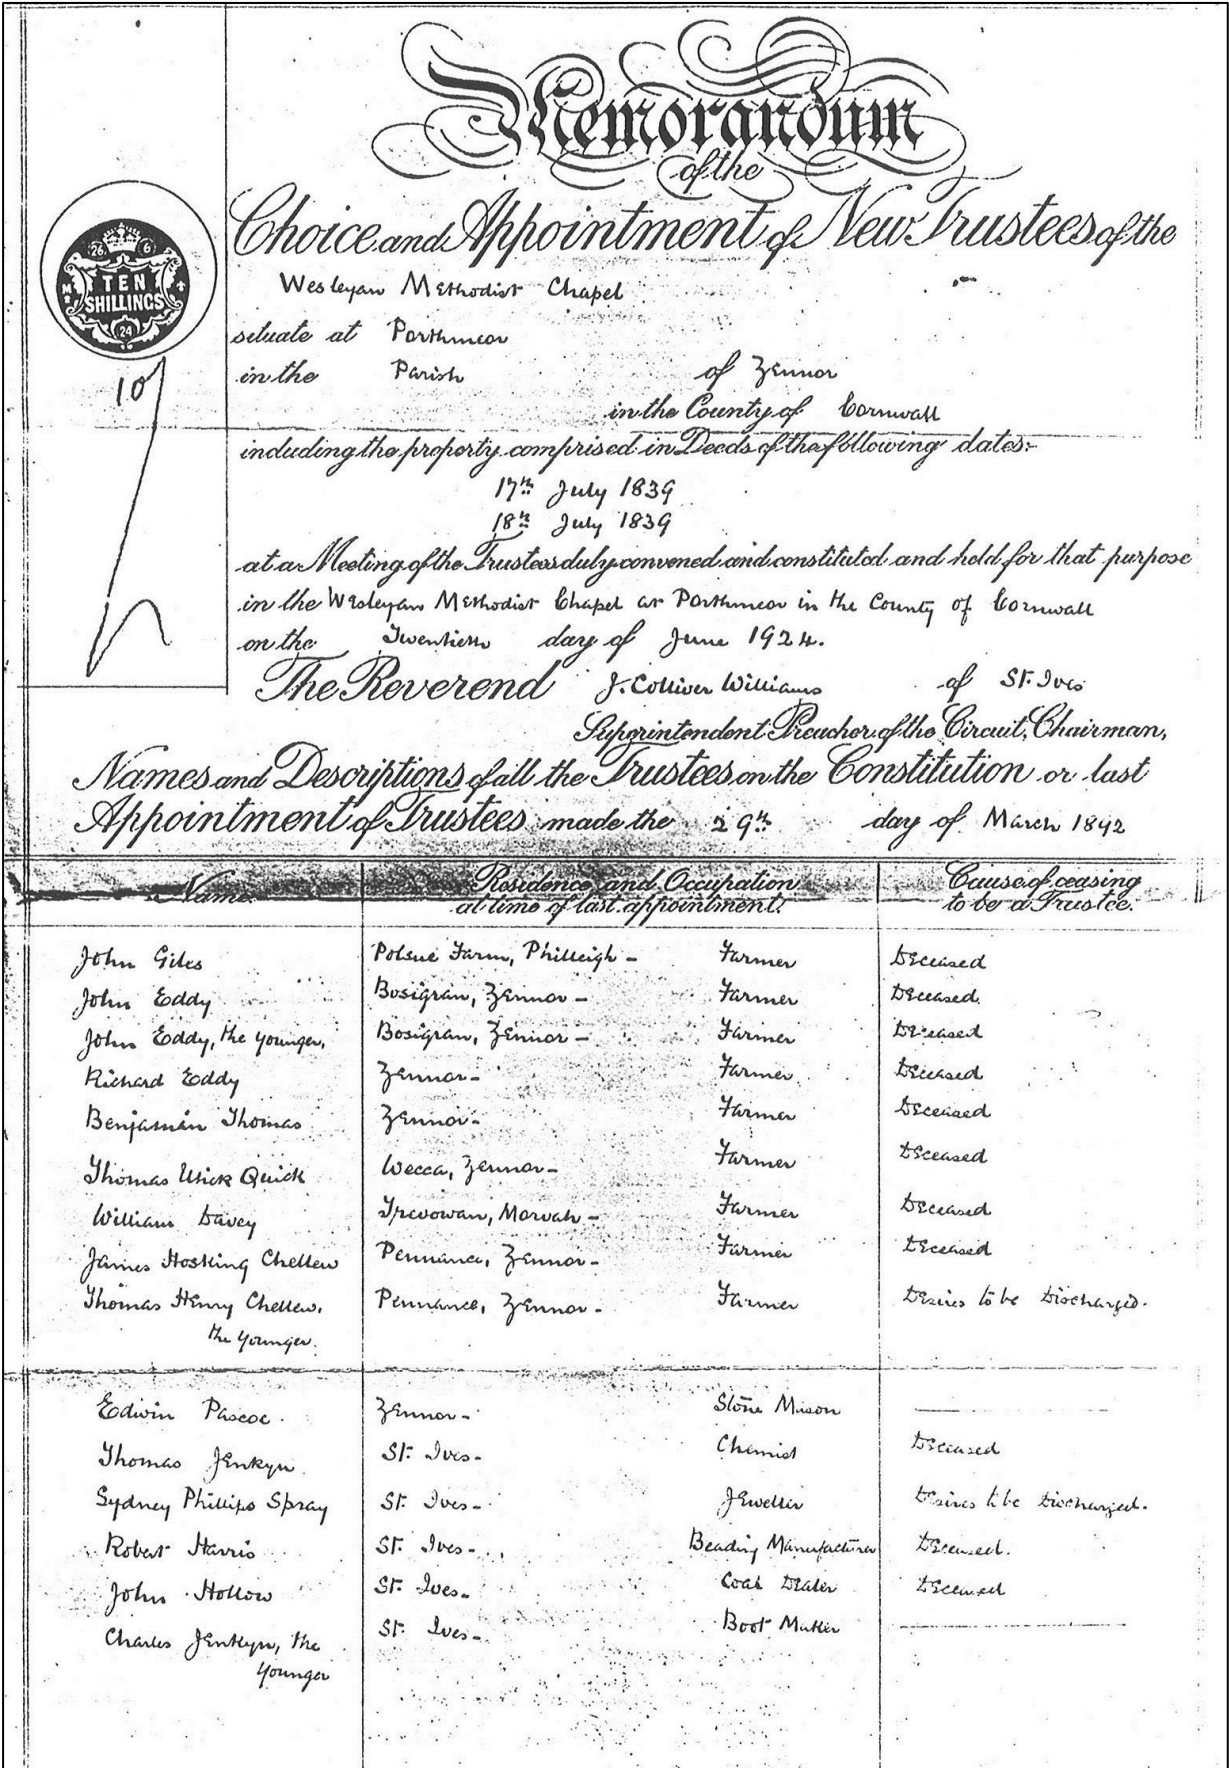 Memorandum
of the
Choice and Appointment of New Trustees of the
26 6
TEN
SHILLINGS
24
10
Wesleyan Methodist Chapel
situate at Porthmeor
in the Parish of Zennor
in the County of Cornwall
including the property comprised in Deeds of the following dates:-
17th July 1839
18th July 1839
at a Meeting of the Trustees duly convened and constituted and held for that purpose
in the Wesleyan Methodist Chapel at Porthmeor in the County of Cornwall
on the Twentieth day of June 1924.
The Reverend J. Colliver Williams of St. Ives
Superintendent Preacher of the Circuit, Chairman,
Names and Descriptions of all the Trustees on the Constitution or last
Appointment of Trustees made the 29th day of March 1892
Name. Residence and Occupation at time of last appointment. Cause of ceasing to be a Trustee.
John Giles Polsue Farm, Philleigh - Farmer Deceased
John Eddy Bosigran, Zennor - Farmer Deceased.
John Eddy, the younger, Bosigran, Zennor - Farmer Deceased
Richard Eddy Zennor - Farmer Deceased
Benjamin Thomas Zennor - Farmer Deceased
Thomas Usick Quick Wicca, Zennor - Farmer Deceased
William Davey Trevowan, Morvah - Farmer Deceased
James Hosking Chellew Pennance, Zennor - Farmer Deceased
Thomas Henry Chellew, Pennance, Zennor - Farmer Desires to be Discharged.
the younger.
Edwin Pascoe. Zennor - Stone Mason
Thomas Jenkyn St. Ives - Chemist Deceased
Sydney Phillips Spray St. Ives - Jeweller Desires to be Discharged.
Robert Harris St. Ives - Beading Manufacturer Deceased.
John Hollow St. Ives - Coal Dealer Deceased
Charles Jenkyn, the St. Ives - Boot Maker
younger